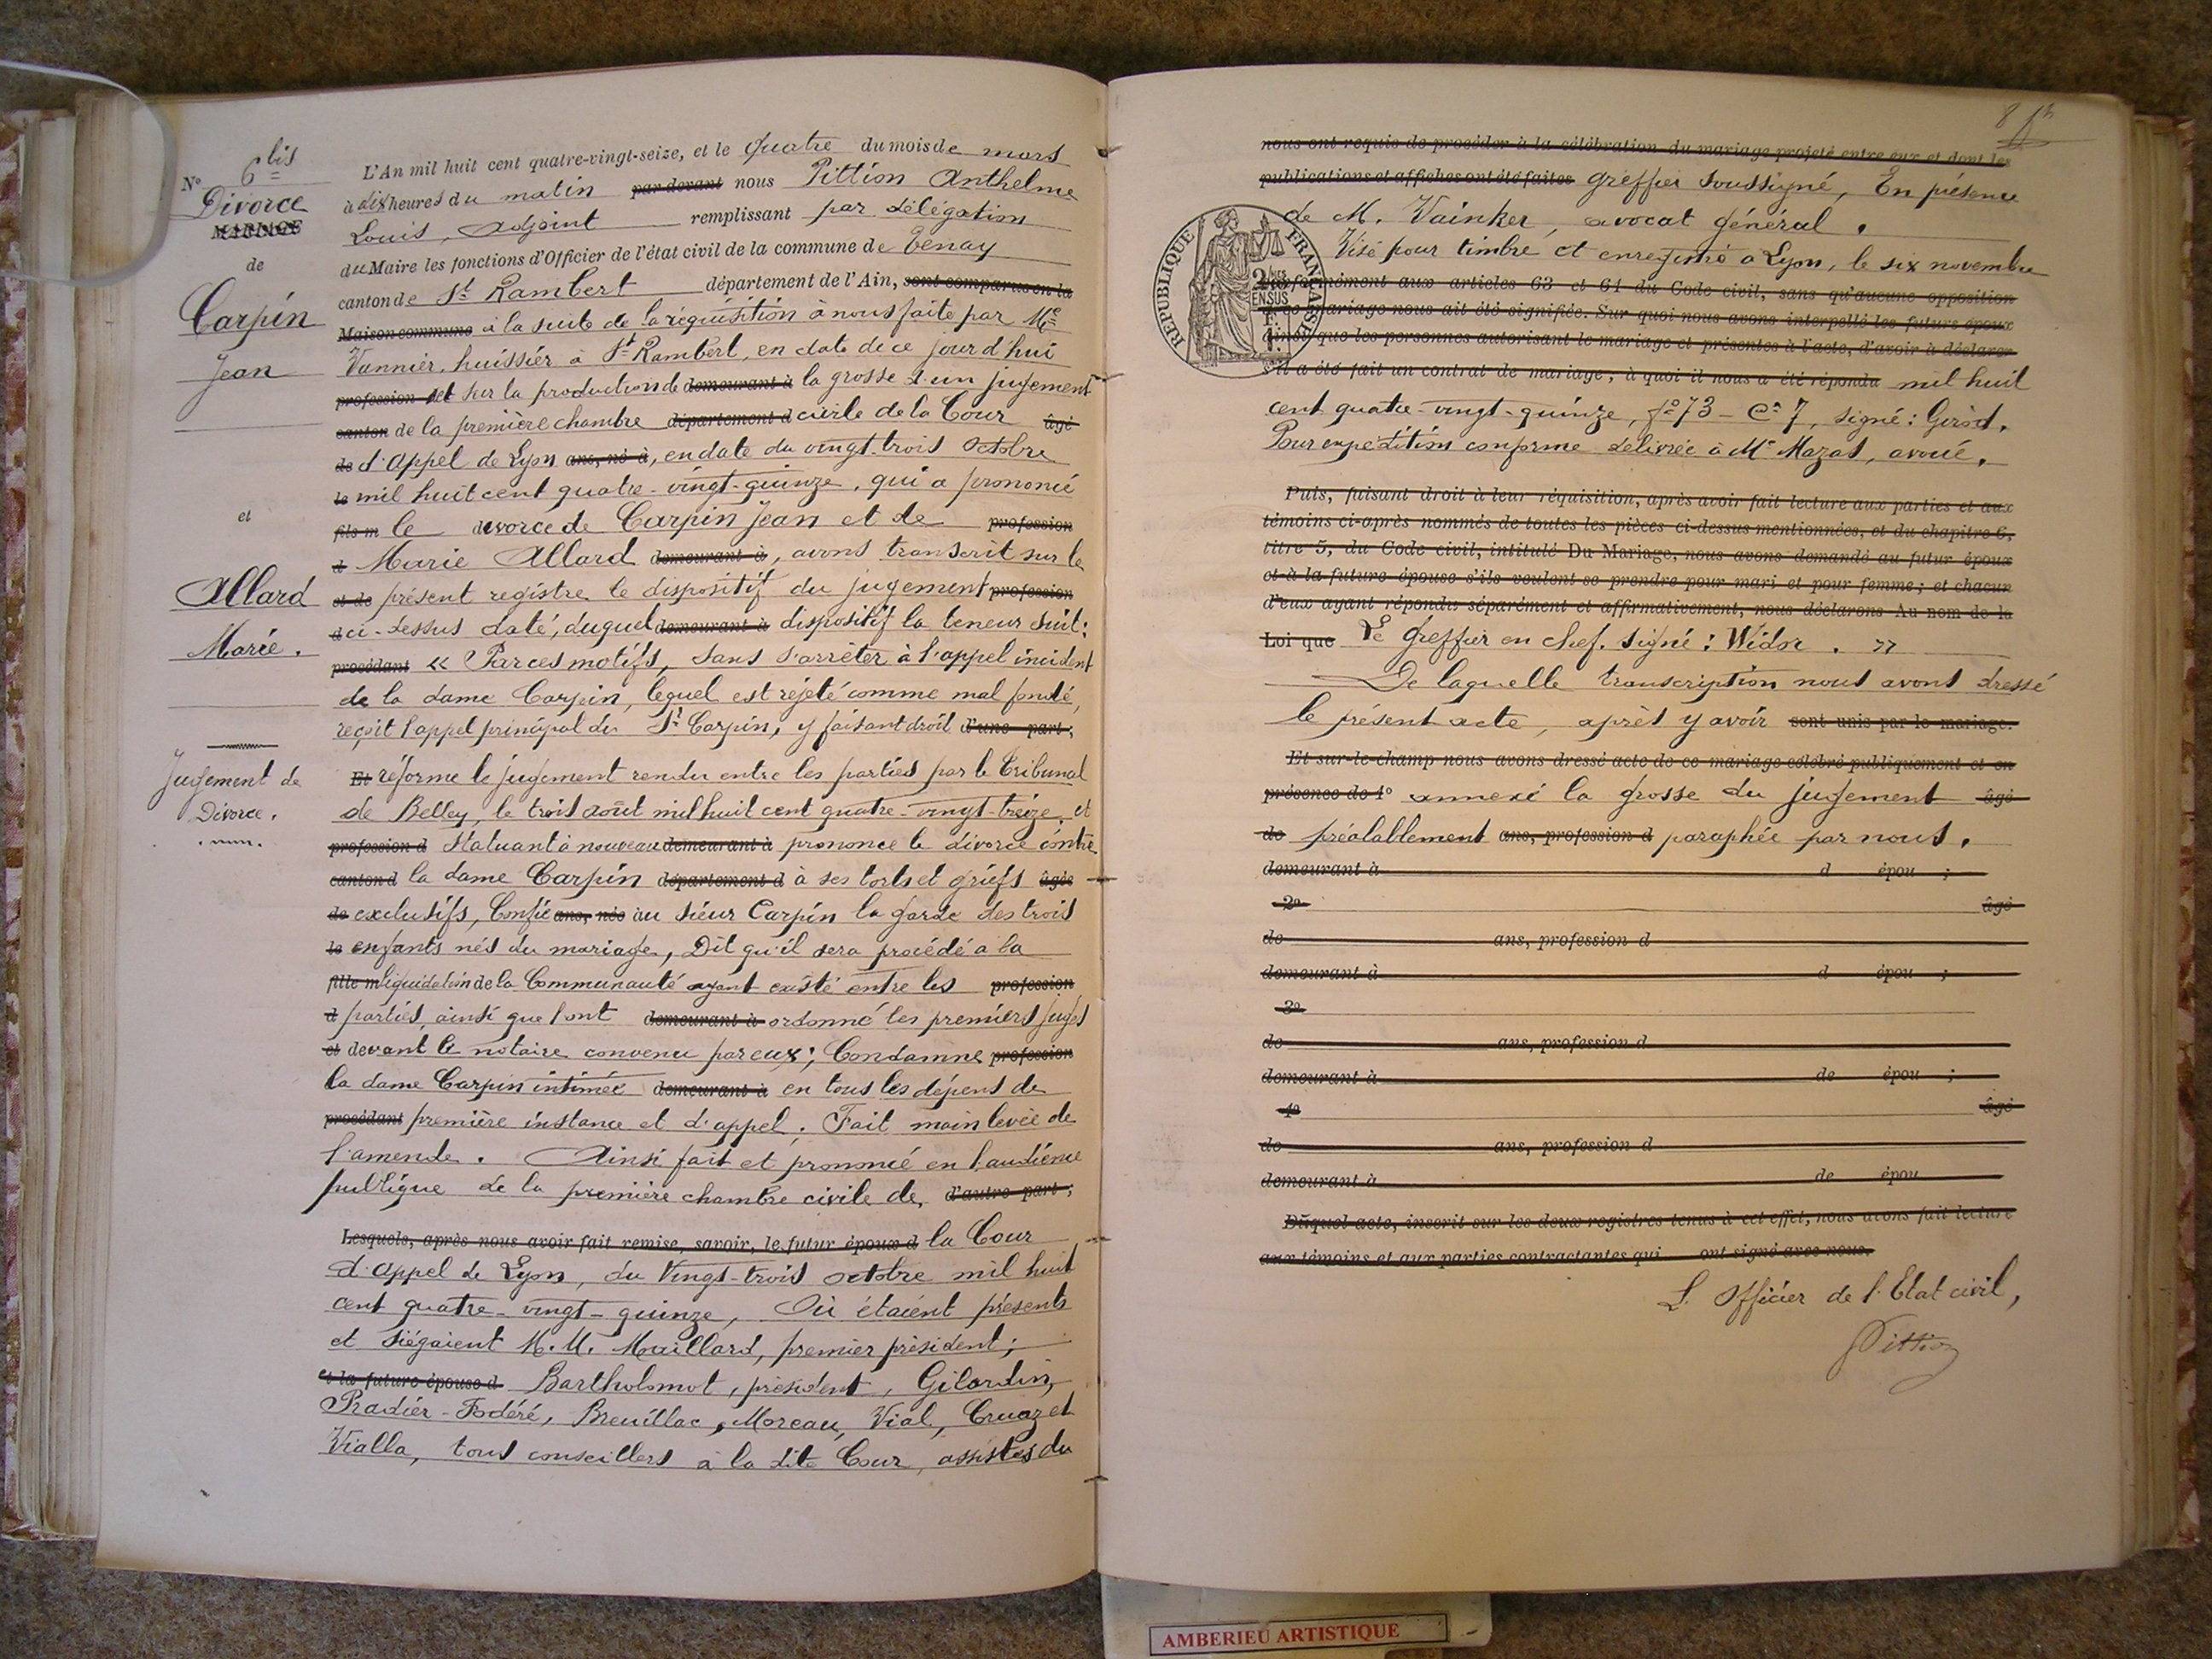 N° 6 bis
Divorce
MARIAGE
de
Carpin
Jean
et
Allard
Marie.
Jugement de
Divorce.
L'An mil huit cent quatre-vingt-seize, et le quatre du mois de mars
à dix heures du matin par devant nous Pittion Anthelme
Louis, adjoint remplissant par délégation
du Maire les fonctions d'Officier de l'état civil de la commune de Tenay
canton de St Rambert département de l'Ain, sont comparus en la
Maison commune à la suite de la réquisition à nous faite par Me
Vannier, huissier à St Rambert, en date de ce jour d'hui
profession et sur la production de demeurant à la grosse d'un jugement
canton de la première chambre département d civile de la Cour âgé
de d'appel de Lyon ans, né à, en date du vingt-trois octobre
le mil huit cent quatre-vingt-quinze, qui a prononcé
fils m le divorce de Carpin Jean et de profession
d Marie Allard demeurant à, avons transcrit sur le
et de présent registre le dispositif du jugement profession
d ci-dessus daté, duquel demeurant à dispositif la teneur suit:
procédant « Par ces motifs, sans s'arrêter à l'appel incident
de la dame Carpin, lequel est rejeté comme mal fondé,
reçoit l'appel principal du Sr Carpin, y faisant droit d'une part;
Et réforme le jugement rendu entre les parties par le Tribunal
de Belley, le trois août mil huit cent quatre-vingt-treize, et
profession d Statuant à nouveau demeurant à prononce le divorce contre
canton d la dame Carpin département d à ses torts et griefs âgée
de exclusifs, Confie ans, née au sieur Carpin la garde des trois
le enfants nés du mariage, Dit qu'il sera procédé à la
fille m liquidation de la Communauté ayant existé entre les profession
d parties, ainsi que l'ont demeurant à ordonné les premiers juges
et devant le notaire convenu par eux; Condamne profession
la dame Carpin intimée demeurant à en tous les dépens de
procédant première instance et d'appel; Fait main levée de
l'amende. Ainsi fait et prononcé en l'audience
publique de la première chambre civile de d'autre part;
Lesquels, après nous avoir fait remise, savoir, le futur époux d la Cour
d'appel de Lyon, du Vingt-trois octobre mil huit
cent quatre-vingt-quinze, Où étaient présents
et siégaient M.M. Maillard, premier président;
et la future épouse d Bartholomot, président, Gilardin,
Pradier-Fodéré, Breuillac, Moreau, Vial, Cruazet
Vialla, tous conseillers à la dite Cour, assistés du
8
nous ont requis de procéder à la célébration du mariage projeté entre eux et dont les
publications et affiches ont été faites greffier soussigné, En présence
de M. Vainker, avocat général.
Visé pour timbre et enregistré à Lyon, le six novembre
REPUBLIQUE FRANÇAISE
Conformément aux articles 63 et 64 du Code civil, sans qu'aucune opposition
à ce mariage nous ait été signifiée. Sur quoi nous avons interpellé les futurs époux
ainsi que les personnes autorisant le mariage et présentes à l'acte, d'avoir à déclarer
s'il a été fait un contrat de mariage, à quoi il nous a été répondu mil huit
cent quatre-vingt-quinze, f° 73 - Ce 7, signé: Girod.
Pour expédition conforme délivrée à Me Mazat, avoué.
Puis, faisant droit à leur réquisition, après avoir fait lecture aux parties et aux
témoins ci-après nommés de toutes les pièces ci-dessus mentionnées, et du chapitre 6,
titre 5, du Code civil, intitulé Du Mariage, nous avons demandé au futur époux
et à la future épouse s'ils veulent se prendre pour mari et pour femme; et chacun
d'eux ayant répondu séparément et affirmativement, nous déclarons Au nom de la
Loi que Le Greffier en chef. signé: Widor. »
De laquelle transcription nous avons dressé
le présent acte, après y avoir sont unis par le mariage.
Et sur-le-champ nous avons dressé acte de ce mariage célébré publiquement et en
présence de 1° annexé la grosse du jugement âgé
de préalablement ans, profession d paraphée par nous.
demeurant à d épou ;
2° âgé
de ans, profession d
demeurant à d épou ;
3°
de ans, profession d
demeurant à de épou ;
4° âgé
de ans, profession d
demeurant à de épou
Duquel acte, inscrit sur les deux registres tenus à cet effet, nous avons fait lecture
aux témoins et aux parties contractantes qui ont signé avec nous.
L'Officier de l'Etat civil,
Pittion
AMBERIEU ARTISTIQUE